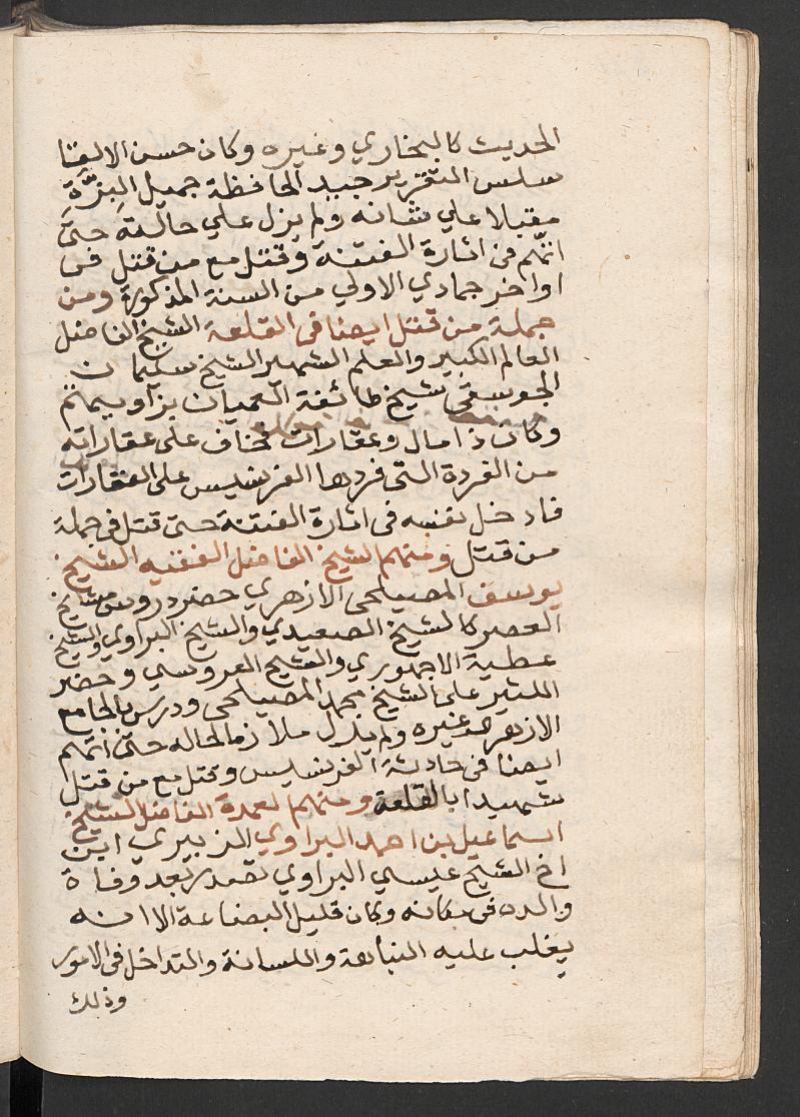 الحديث كالبخاري وغيره وكان حسن الالقا
سلس التقرير جيد الحافظة جميل البزّة
مقبلا علي شانه ولم يزل علي حالته حتي
اتّهم في اثارة الفتنة وقتل مع من قتل في
اواخر جمادي الاولي من السنة المذكورة ومن
جملة من قتل ايضا في القلعة الشيخ الفاضل
العالم الكبير والعلم الشهير الشيخ سليمان
الجوسقي شيخ طائفة العميان بزاويتهم
وكان ذا مال وعقارات فخاف على عقاراته
من الفردة التي فردها الفرنسيس على العقارات
فادخل نفسه في اثارة الفتنة حتي قتل في جملة
من قتل ومنهم الشيخ الفاضل الفقيه الشيخ
يوسف المصيلحي الازهري حضر دروس مشايخ
العصر كالشيخ الصعيدي والشيخ البراوي والشيخ
عطية الاجهوري والشيخ العروسي وحضر
الكثير على الشيخ محمد المصيلحي ودرس بالجامع
الازهر وغيره ولم يزل ملازما لحاله حتي اتهم
ايضا في حادثة الفرنسيس وقتل مع من قتل
شهيدا بالقلعة ومنهم العمدة الفاضل الشيخ
اسماعيل بن احمد البراوي الزبيري ابن
اخ الشيخ عيسي البراوي تصدر بعد وفاة
والده في مكانه وكان قليل البضاعة الا انه
يغلب عليه النباهة واللسانة والتداخل في الامور
وذلك